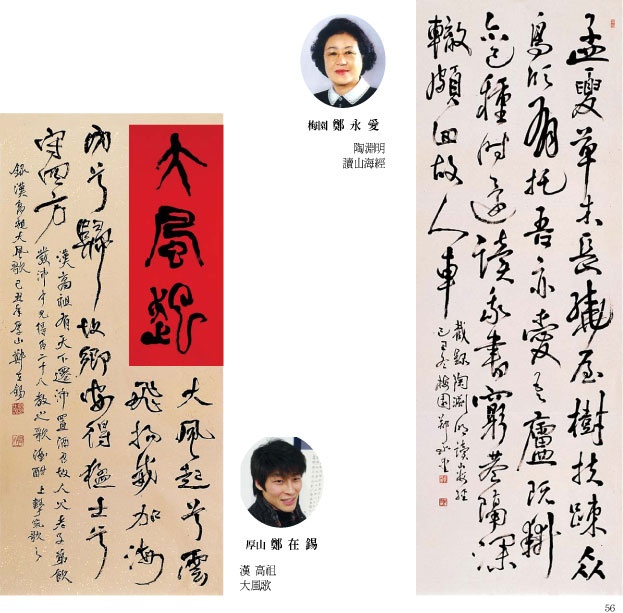 孟夏草木長繞屋樹扶疎衆
鳥欣有托吾亦愛吾廬既耕
亦已種時還讀我書窮巷隔深
轍頗回故人車
截錄陶淵明讀山海經
己丑冬梅園鄭永愛
梅園 鄭永愛
陶淵明
讀山海經
大風歌
大風起兮雲
飛揚威加海
內兮歸故鄉安得猛士兮
守四方
漢高祖有天下還沛置酒召故人父老子弟飲
發沛中兒得百二十人教之歌酒酣上擊筑歌之
錄漢高祖大風歌己丑年厚山鄭在錫
厚山 鄭在錫
漢 高祖
大風歌
56